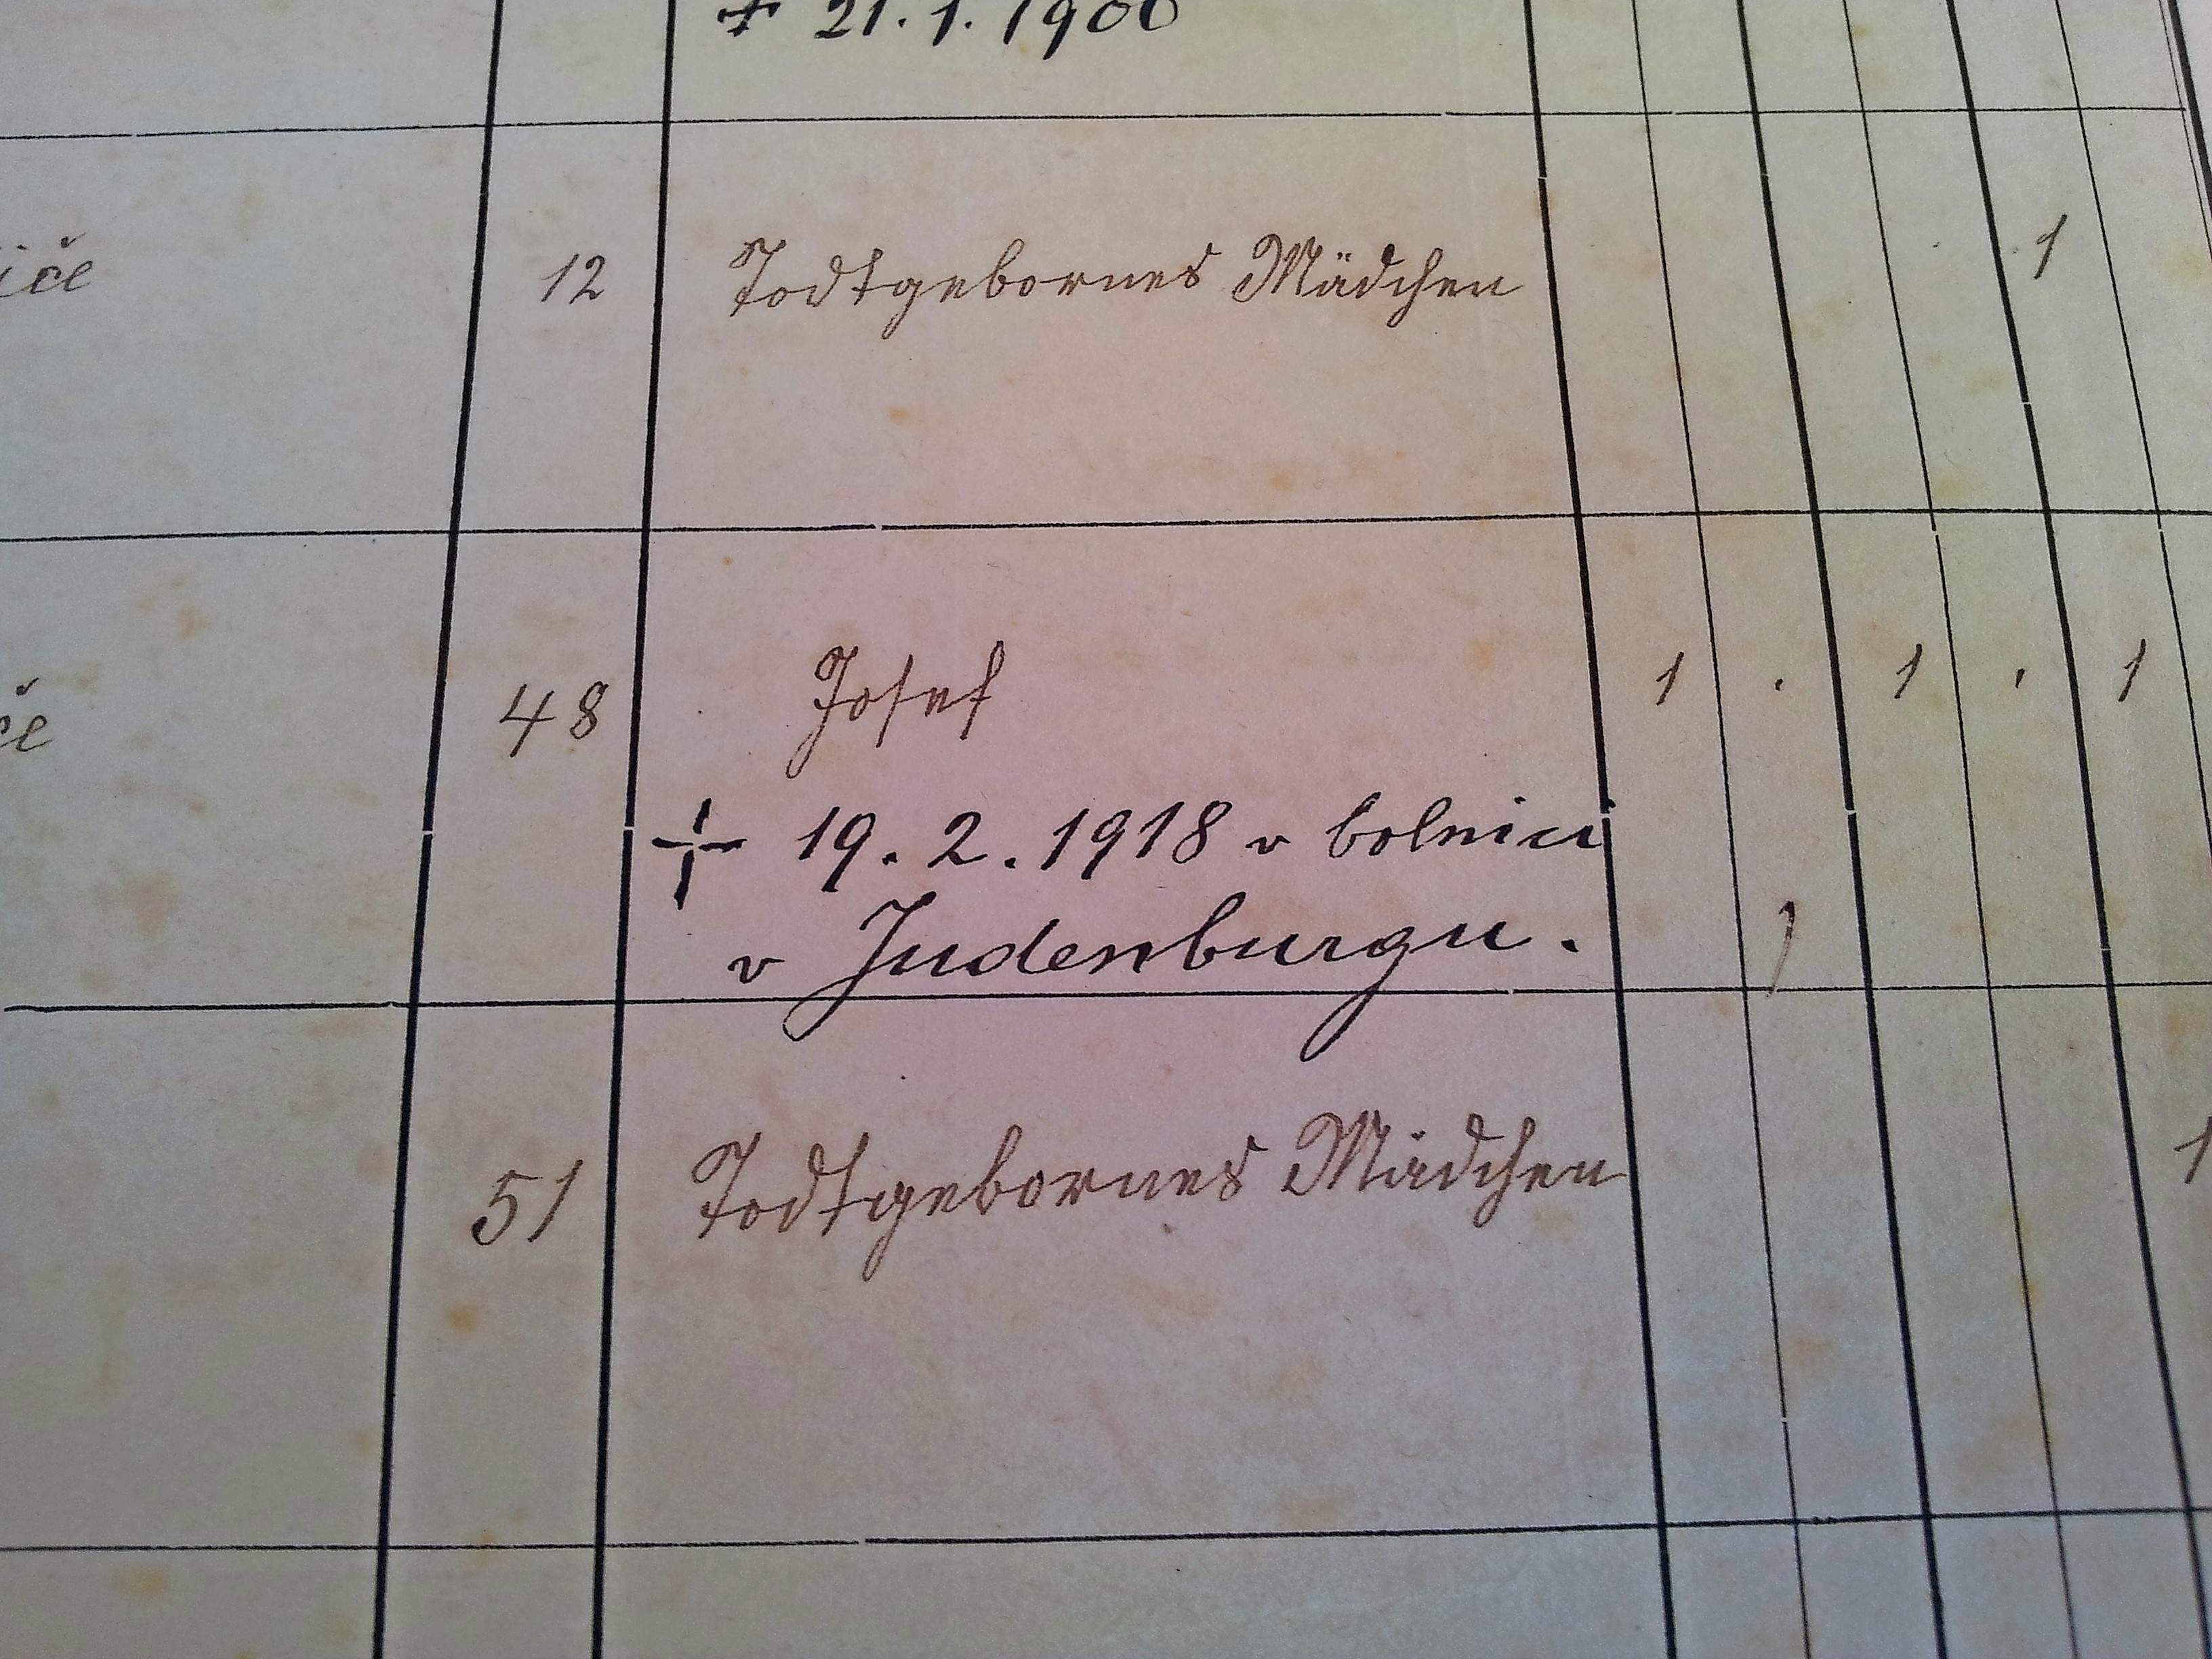 + 21.1.1900
12 Todtgebornes Mädchen 1
48 Josef 1 . 1 . 1
+ 19.2.1918 v bolnici
v Judenburgu. 1
51 Todtgebornes Mädchen 1